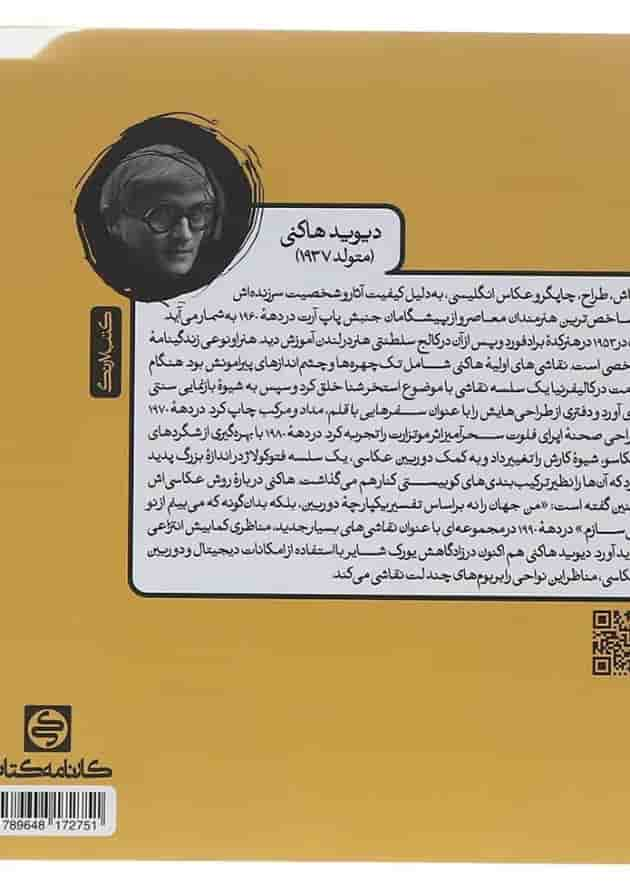 دیوید هاکنی
(متولد ۱۹۳۷)
طراح، چاپگر و عکاس انگلیسی، به‌دلیل کیفیت آثار و شخصیت سرزنده‌اش
هنرمندان معاصر و از پیشگامان جنبش پاپ آرت در دههٔ ۱۹۶۰ به‌شمار می‌آید
در ۱۹۵۳ در هنرکدهٔ برادفورد و پس از آن در کالج سلطنتی هنر در لندن آموزش دید. هنر او نوعی زندگینامهٔ
است. نقاشی‌های اولیهٔ هاکنی شامل تک‌چهره‌ها و چشم‌اندازهای پیرامونش بود. هنگام
در کالیفرنیا یک سلسه نقاشی با موضوع استخر شنا خلق کرد و سپس به شیوهٔ بازنمایی سنتی
آورد و دفتری از طراحی‌هایش را با عنوان سفرهایی با قلم، مداد و مرکب چاپ کرد. در دههٔ ۱۹۷۰
صحنهٔ اپرای فلوت سحرآمیز اثر موتزارت را تجربه کرد. در دههٔ ۱۹۸۰ با بهره‌گیری از شگردهای
شیوهٔ کارش را تغییر داد و به کمک دوربین عکاسی، یک سلسه فتوکولاژ در اندازهٔ بزرگ پدید
که آن‌ها را نظیر ترکیب‌بندی‌های کوبیستی کنار هم می‌گذاشت. هاکنی دربارهٔ روش عکاسی‌اش
گفته است: «من جهان را نه براساس تفسیر یکپارچهٔ دوربین، بلکه بدان‌گونه که می‌بینم از نو
سازم.» در دههٔ ۱۹۹۰ در مجموعه‌ای با عنوان نقاشی‌های بسیار جدید، مناظری کمابیش انتزاعی
آورد. دیوید هاکنی هم اکنون در زادگاهش یورک شایر با استفاده از امکانات دیجیتال و دوربین
مناظر این نواحی را بر بوم‌های چند لت نقاشی می‌کند.
کتب لارنگ
کارنامه کتاب
789648 172751